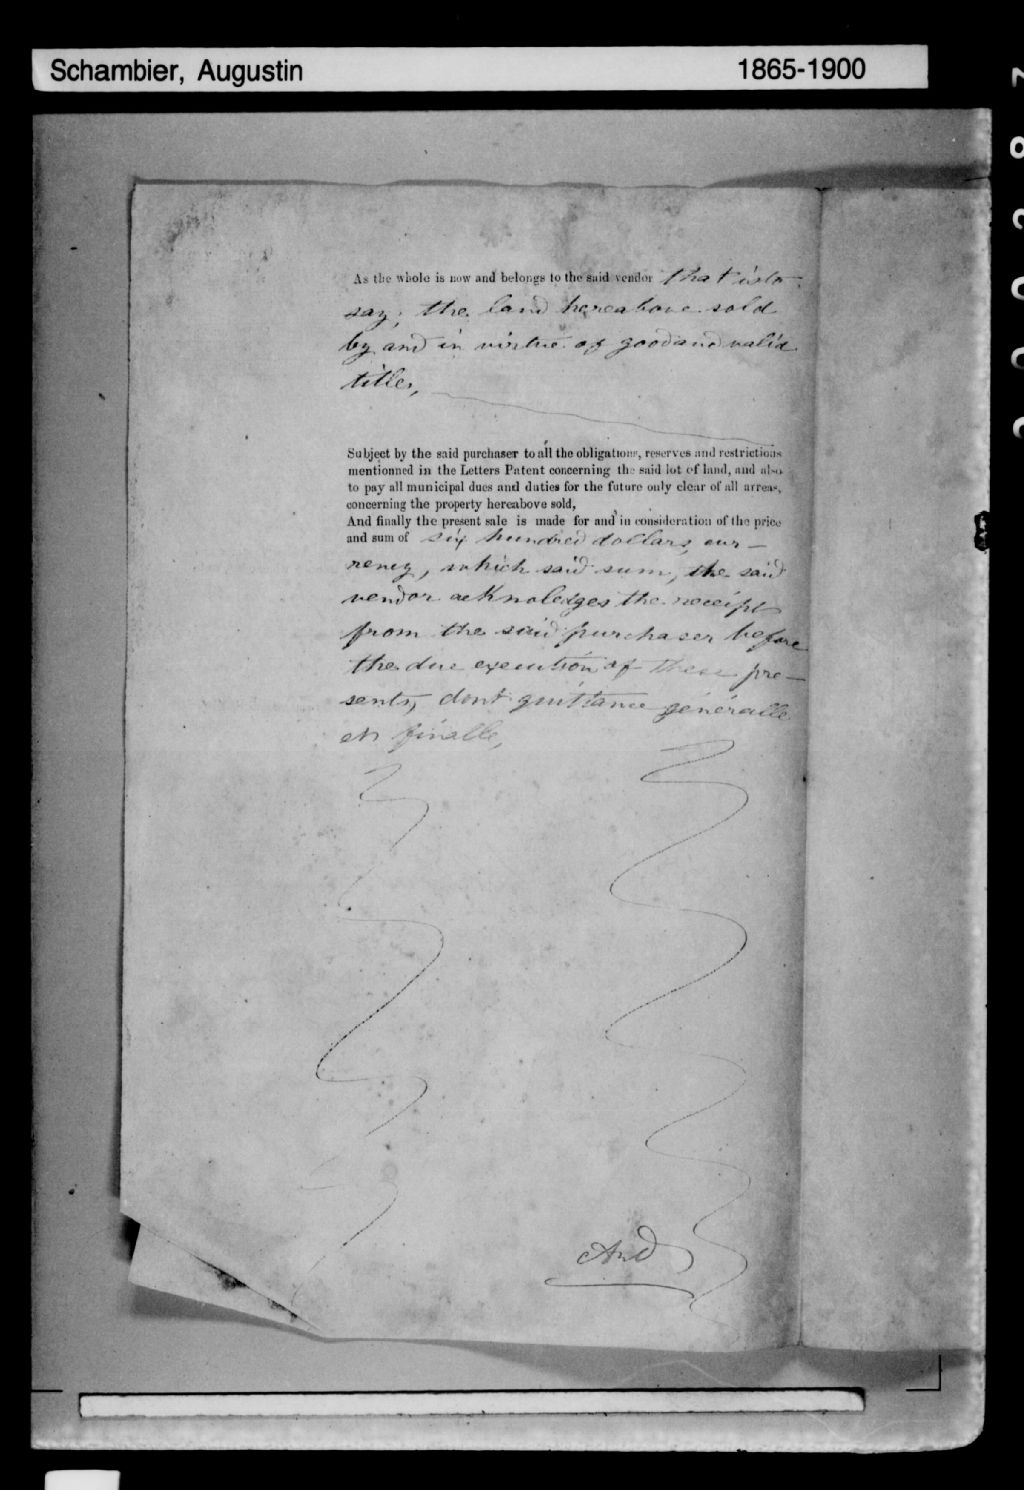 Schambier, Augustin 1865-1900
As the whole is now and belongs to the said vendor that is to
say; the land hereabove sold
by and in virtue of good and valid
titles,
Subject by the said purchaser to all the obligations, reserves and restrictions
mentionned in the Letters Patent concerning the said lot of land, and also
to pay all municipal dues and duties for the future only clear of all arreas,
concerning the property hereabove sold,
And finally the present sale is made for and in consideration of the price
and sum of six hundred dollars, cur-
rency, which said sum, the said
vendor acknoledges the receipt
from the said purchaser before
the due execution of these pre-
sents, dont quittance généralle
et finalle,
And